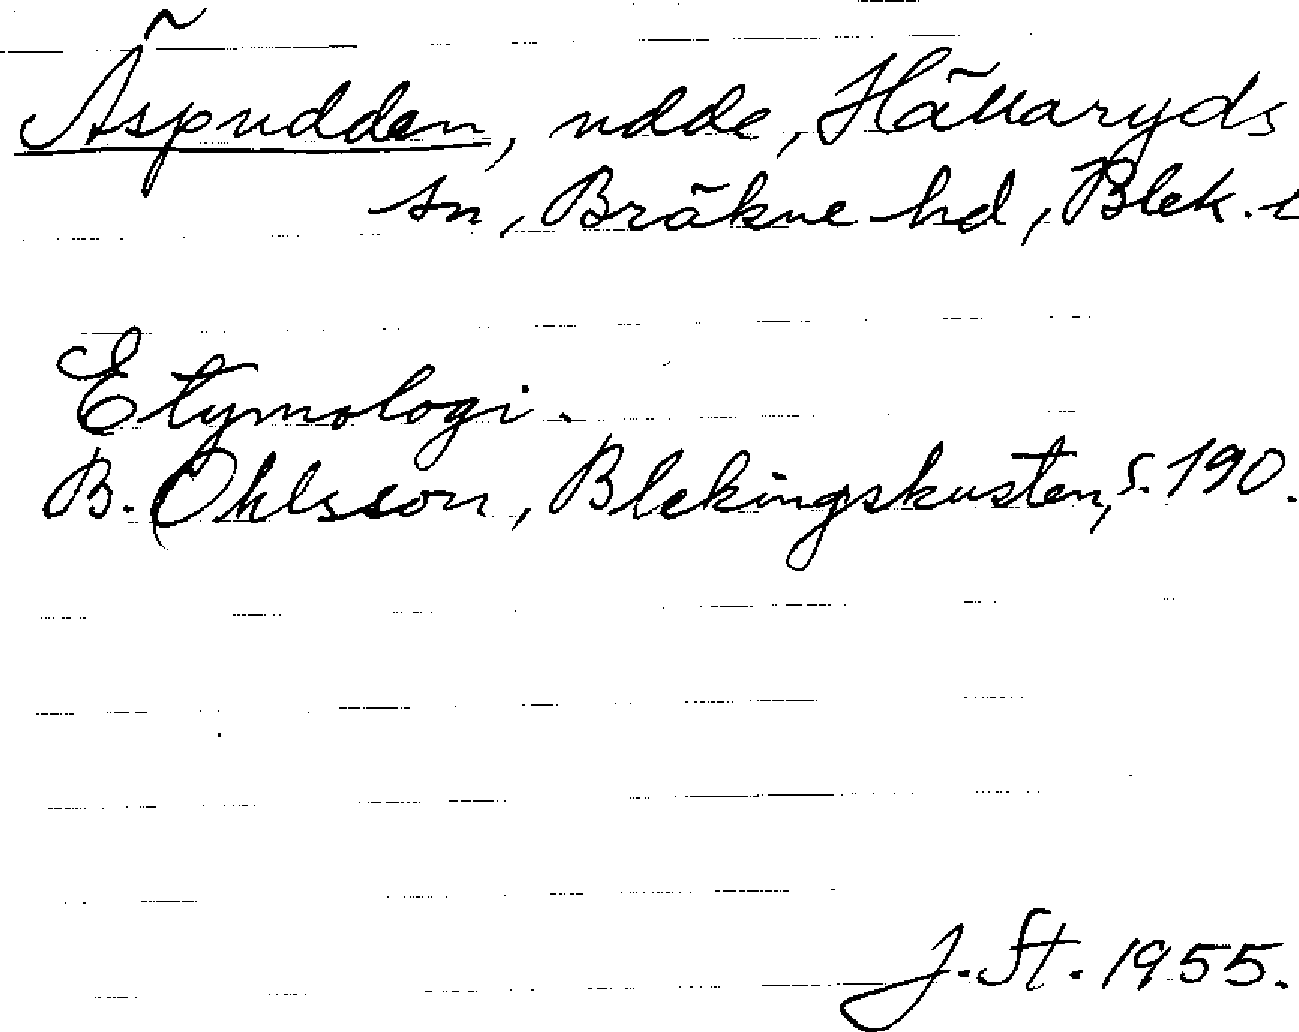 Äspudden, udde, Hällaryds
sn, Bräkne hd, Blek. l
Etymologi.
B. Ohlsson, Blekingskusten, s. 190.
J. St. 1955.